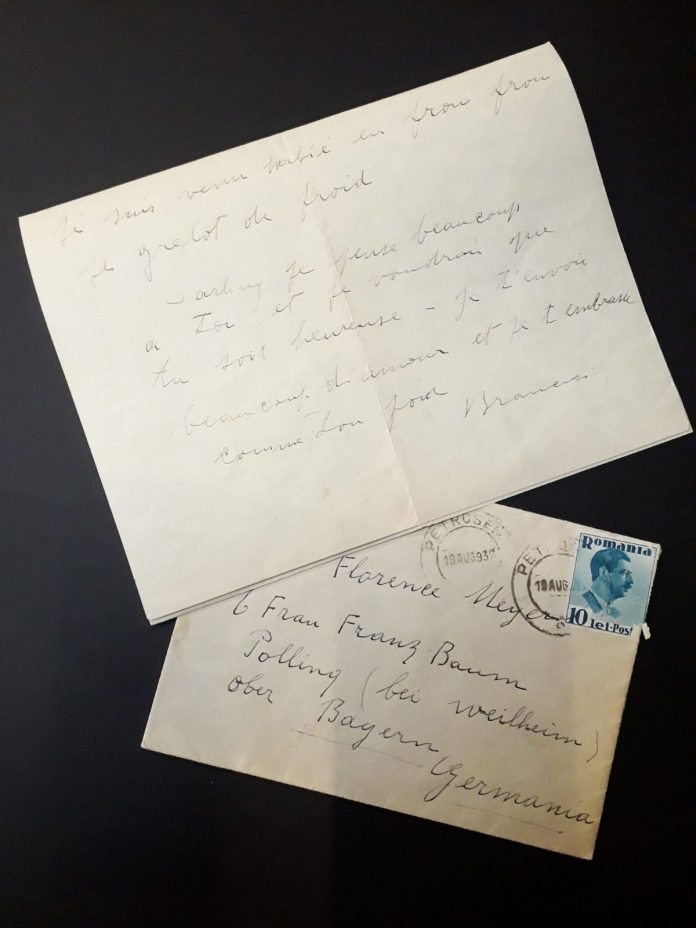 Je suis venu habié en frou frou
je grelot de froid
Darling je pense beaucoup
a toi et je voudrai que
tu soit heureuse - je t'envoie
beaucoup d'amour et je t'embrasse
comme ton
PETROSEN
19 AUG 937
PET
19 AUG
Romania
10 lei-Post
Florence Meyer
Frau Franz Baum
Polling (bei weilheim)
ober Bayern
Germania